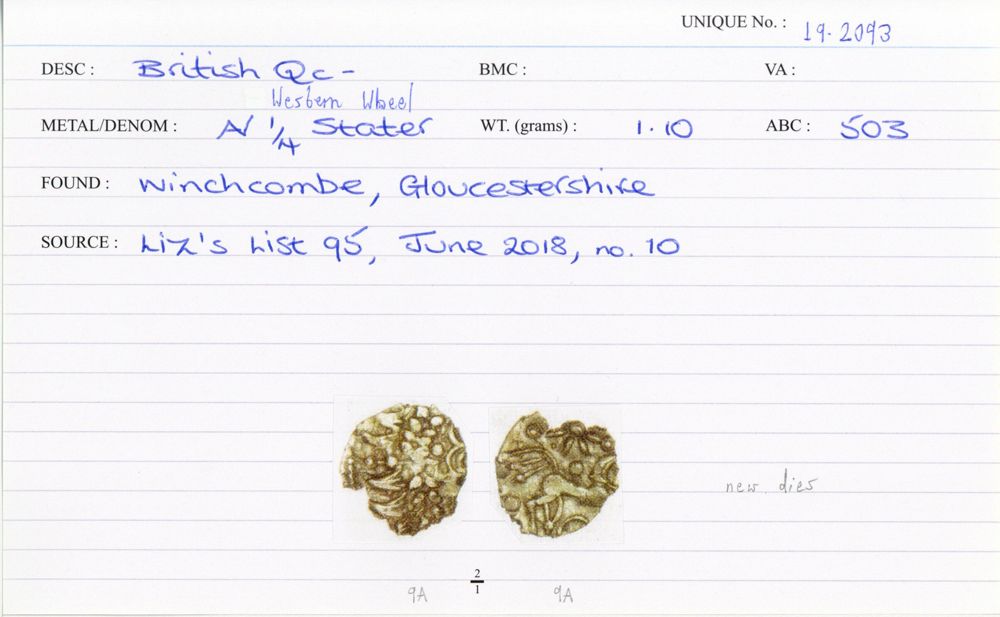 UNIQUE No. : 19.2093
DESC : British Qc - BMC : VA :
Western Wheel
METAL/DENOM : AV 1/4 Stater WT. (grams) : 1.10 ABC : 503
FOUND : Winchcombe, Gloucestershire
SOURCE : Liz's List 95, June 2018, no. 10
new dies
2
1
9A 9A